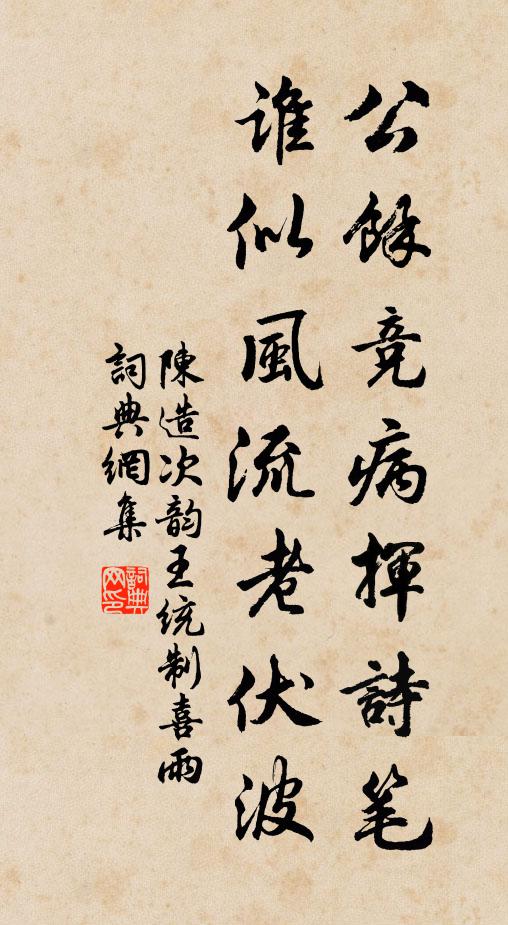 公餘竞病揮詩笔
誰似風流老伏波
陳造次韵王统制喜雨
詞典網集
詞典
网印